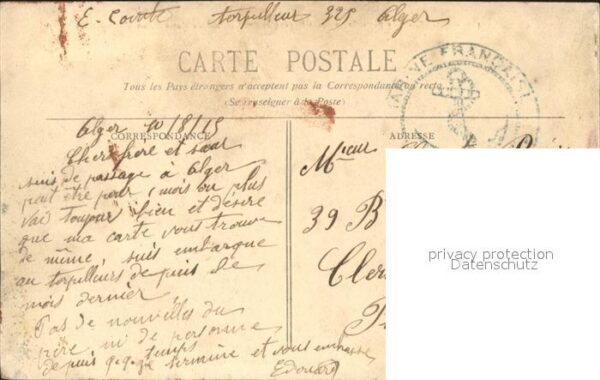 E. Comte torpilleur 325 Alger
CARTE POSTALE
Tous les Pays étrangers n'acceptent pas la Correspondance au recto
(Se renseigner à la Poste)
MARINE FRANÇAISE
CORRESPONDANCE
ADRESSE
Alger 10/8/15
Cher frère et sœur
suis de passage à Alger
peut être pour 1 mois ou plus
Vais toujour bien et désire
que ma carte vous trouve
de même, suis embarque
au torpilleurs depuis le
mois dernier
Pas de nouvelles du
père ni de personne
depuis q.q. temps
je termine et vous embrasse
Edouard
Mr
39 B
Cler
P
privacy protection
Datenschutz